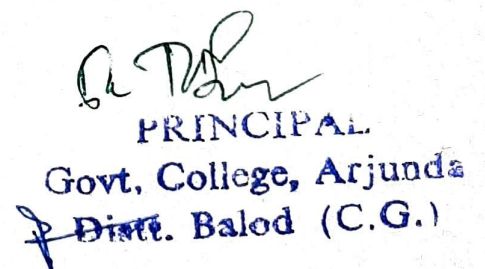 PRINCIPAL
Govt. College, Arjunda
Distt. Balod (C.G.)